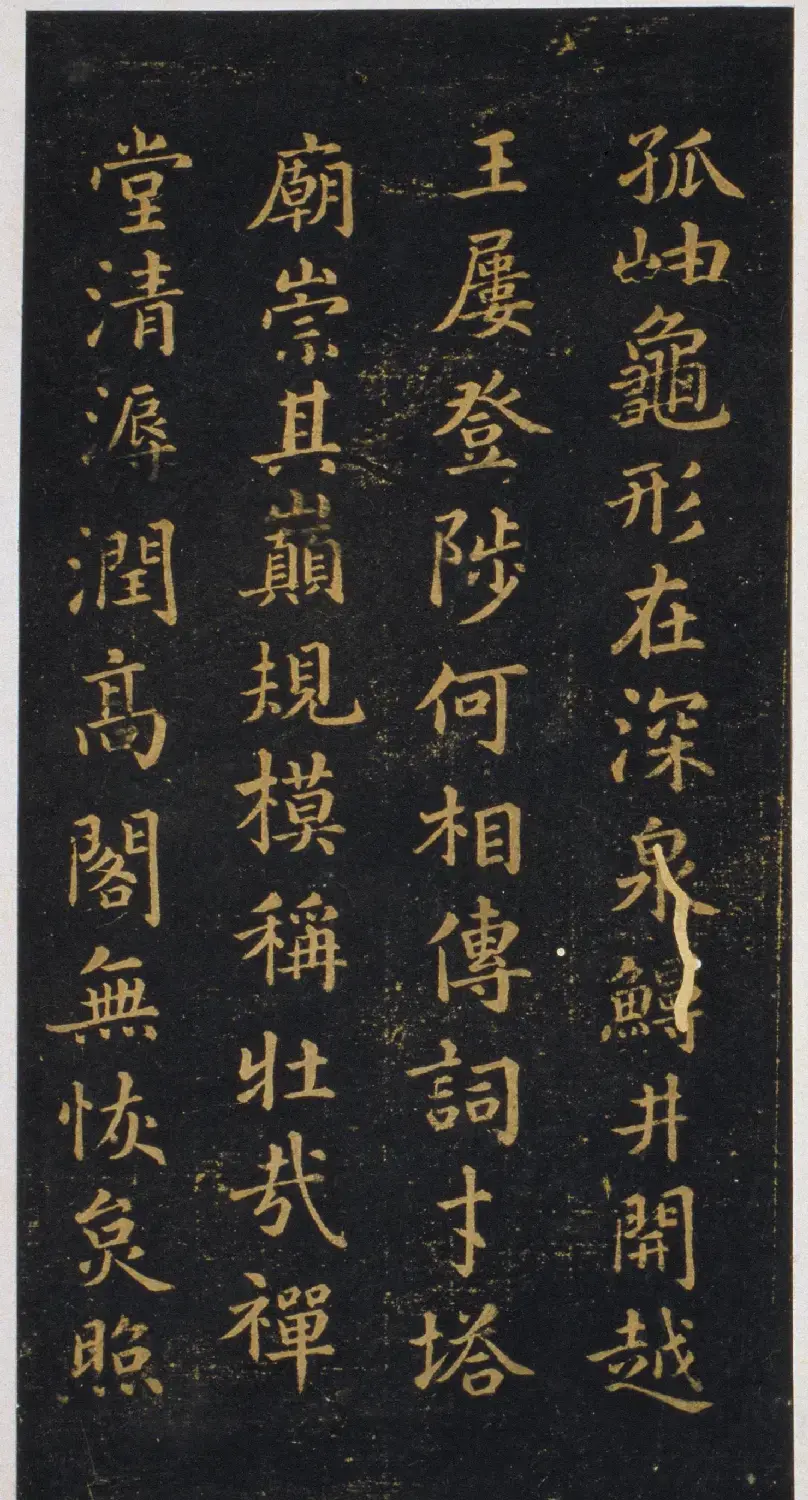 孤岫龜形在深泉鰻井開越
王屢登陟何相傳詞才塔
廟崇其巔規模稱壯哉禪
堂清溽潤高閣無恢炱照